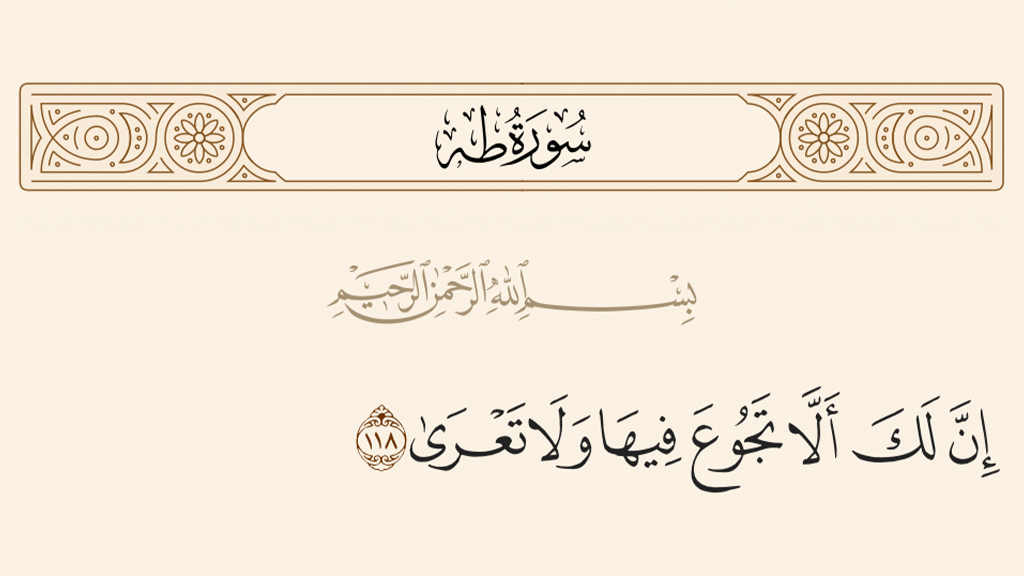 سُورَةُ طه
بِسْمِ ٱللَّهِ ٱلرَّحْمَٰنِ ٱلرَّحِيمِ
إِنَّ لَكَ أَلَّا تَجُوعَ فِيهَا وَلَا تَعْرَىٰ ١١٨